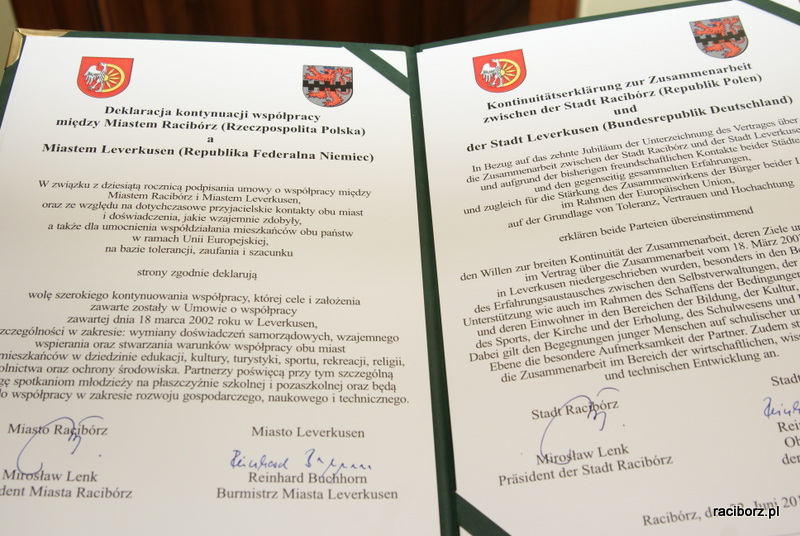 Deklaracja kontynuacji współpracy
między Miastem Racibórz (Rzeczpospolita Polska)
a
Miastem Leverkusen (Republika Federalna Niemiec)
W związku z dziesiątą rocznicą podpisania umowy o współpracy między
Miastem Racibórz i Miastem Leverkusen,
oraz ze względu na dotychczasowe przyjacielskie kontakty obu miast
i doświadczenia, jakie wzajemnie zdobyły,
a także dla umocnienia współdziałania mieszkańców obu państw
w ramach Unii Europejskiej,
na bazie tolerancji, zaufania i szacunku
strony zgodnie deklarują
wolę szerokiego kontynuowania współpracy, której cele i założenia
zawarte zostały w Umowie o współpracy
zawartej dnia 18 marca 2002 roku w Leverkusen,
zczególności w zakresie: wymiany doświadczeń samorządowych, wzajemnego
wspierania oraz stwarzania warunków współpracy obu miast
mieszkańców w dziedzinie edukacji, kultury, turystyki, sportu, rekreacji, religii,
olnictwa oraz ochrony środowiska. Partnerzy poświęcą przy tym szczególną
gę spotkaniom młodzieży na płaszczyźnie szkolnej i pozaszkolnej oraz będą
do współpracy w zakresie rozwoju gospodarczego, naukowego i technicznego.
Miasto Racibórz Miasto Leverkusen
Reinhard Buchhorn
Mirosław Lenk Reinhard Buchhorn
dent Miasta Racibórz Burmistrz Miasta Leverkusen
Kontinuitätserklärung zur Zusammenarbeit
zwischen der Stadt Racibórz (Republik Polen)
und
der Stadt Leverkusen (Bundesrepublik Deutschland)
In Bezug auf das zehnte Jubiläum der Unterzeichnung des Vertrages über
die Zusammenarbeit zwischen der Stadt Racibórz und der Stadt Leverkuse
und aufgrund der bisherigen freundschaftlichen Kontakte beider Städte
und den gegenseitig gesammelten Erfahrungen,
und zugleich für die Stärkung des Zusammenwirkens der Bürger beider L
im Rahmen der Europäischen Union,
auf der Grundlage von Toleranz, Vertrauen und Hochachtung
erklären beide Parteien übereinstimmend
den Willen zur breiten Kontinuität der Zusammenarbeit, deren Ziele un
im Vertrag über die Zusammenarbeit vom 18. März 2002
in Leverkusen niedergeschrieben wurden, besonders in den Be
des Erfahrungsaustausches zwischen den Selbstverwaltungen, der
Unterstützung wie auch im Rahmen des Schaffens der Bedingungen
und deren Einwohner in den Bereichen der Bildung, der Kultur,
des Sports, der Kirche und der Erholung, des Schulwesens und
Dabei gilt den Begegnungen junger Menschen auf schulischer un
Ebene die besondere Aufmerksamkeit der Partner. Zudem st
die Zusammenarbeit im Bereich der wirtschaftlichen, wiss
und technischen Entwicklung an.
Stadt Racibórz Stad
Mirosław Lenk Rei
Präsident der Stadt Racibórz Ob
der
Racibórz, den Juni 201
raciborz.pl